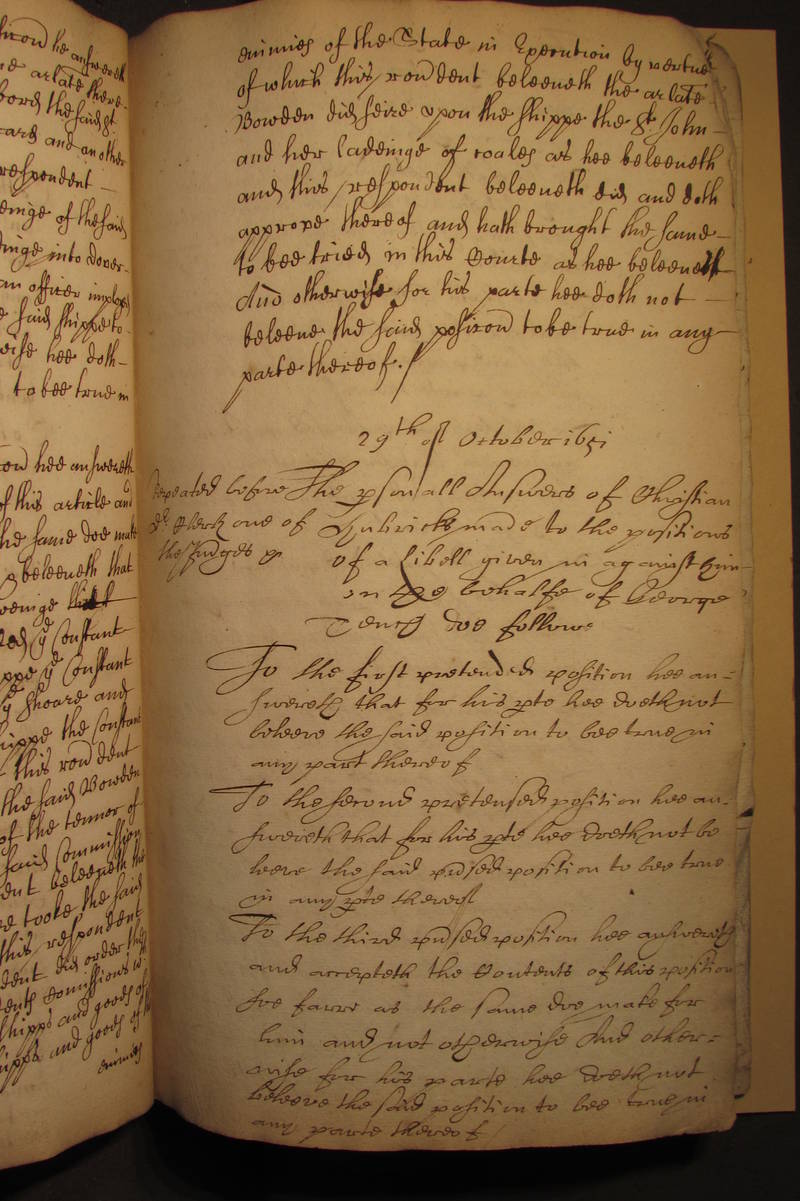 hee answereth
arlate there-
bord the said St
and an other
respondent -
of the said
into Dover-
an officer imployed
said shippe to-
hee doth-
to bee true in
hee answereth
of this article and
the same doe make
beleeneth that
ye Constant
ye Constant
ye shoare and
shippe the Constant
this rondent
the said Bowden
of the tennor of
said Commission
beleeneth the
tooke the said
this respondent
did order the
Comissions
shipps and goods of
shipps and goods of the
enimies
enimies of the State in Execution by vertue
of which this rondent beleeneth the arlate -
Bowden did seire upon the shippe the St. John -
and her ladeinge of coales as hee beleeneth
and this respondent beleeneth did and doth
approve thereof and hath brought the same -
to bee tried in this Courte as hee beleeneth
And otherwise for his parte hee doth not -
beleene the said posicon to be true in any
parte thereof./
29th of October 1651
Repeated before
Dr Clerk one of
the Judges &
The psonall Answers of Christian
made to the positions
of a libell given in against him
on the behalfe of George
doe followe
To the first pretended position hee an=
swereth that for his pte hee doeth not
beleeve the said position to bee true in
any part thereof
To the second pretensed position hee an-
swereth that for his pte hee doeth not be
leeve the said ptnsed position to bee true
in any pte thereof
To the third ptnsed position hee answereth
and accepteth the Contents of this position
soe farre as the same doe make for
him and not otherwise And other=
wise for his parte hee doeth not
beleeve the said position to bee true in
any parte thereof